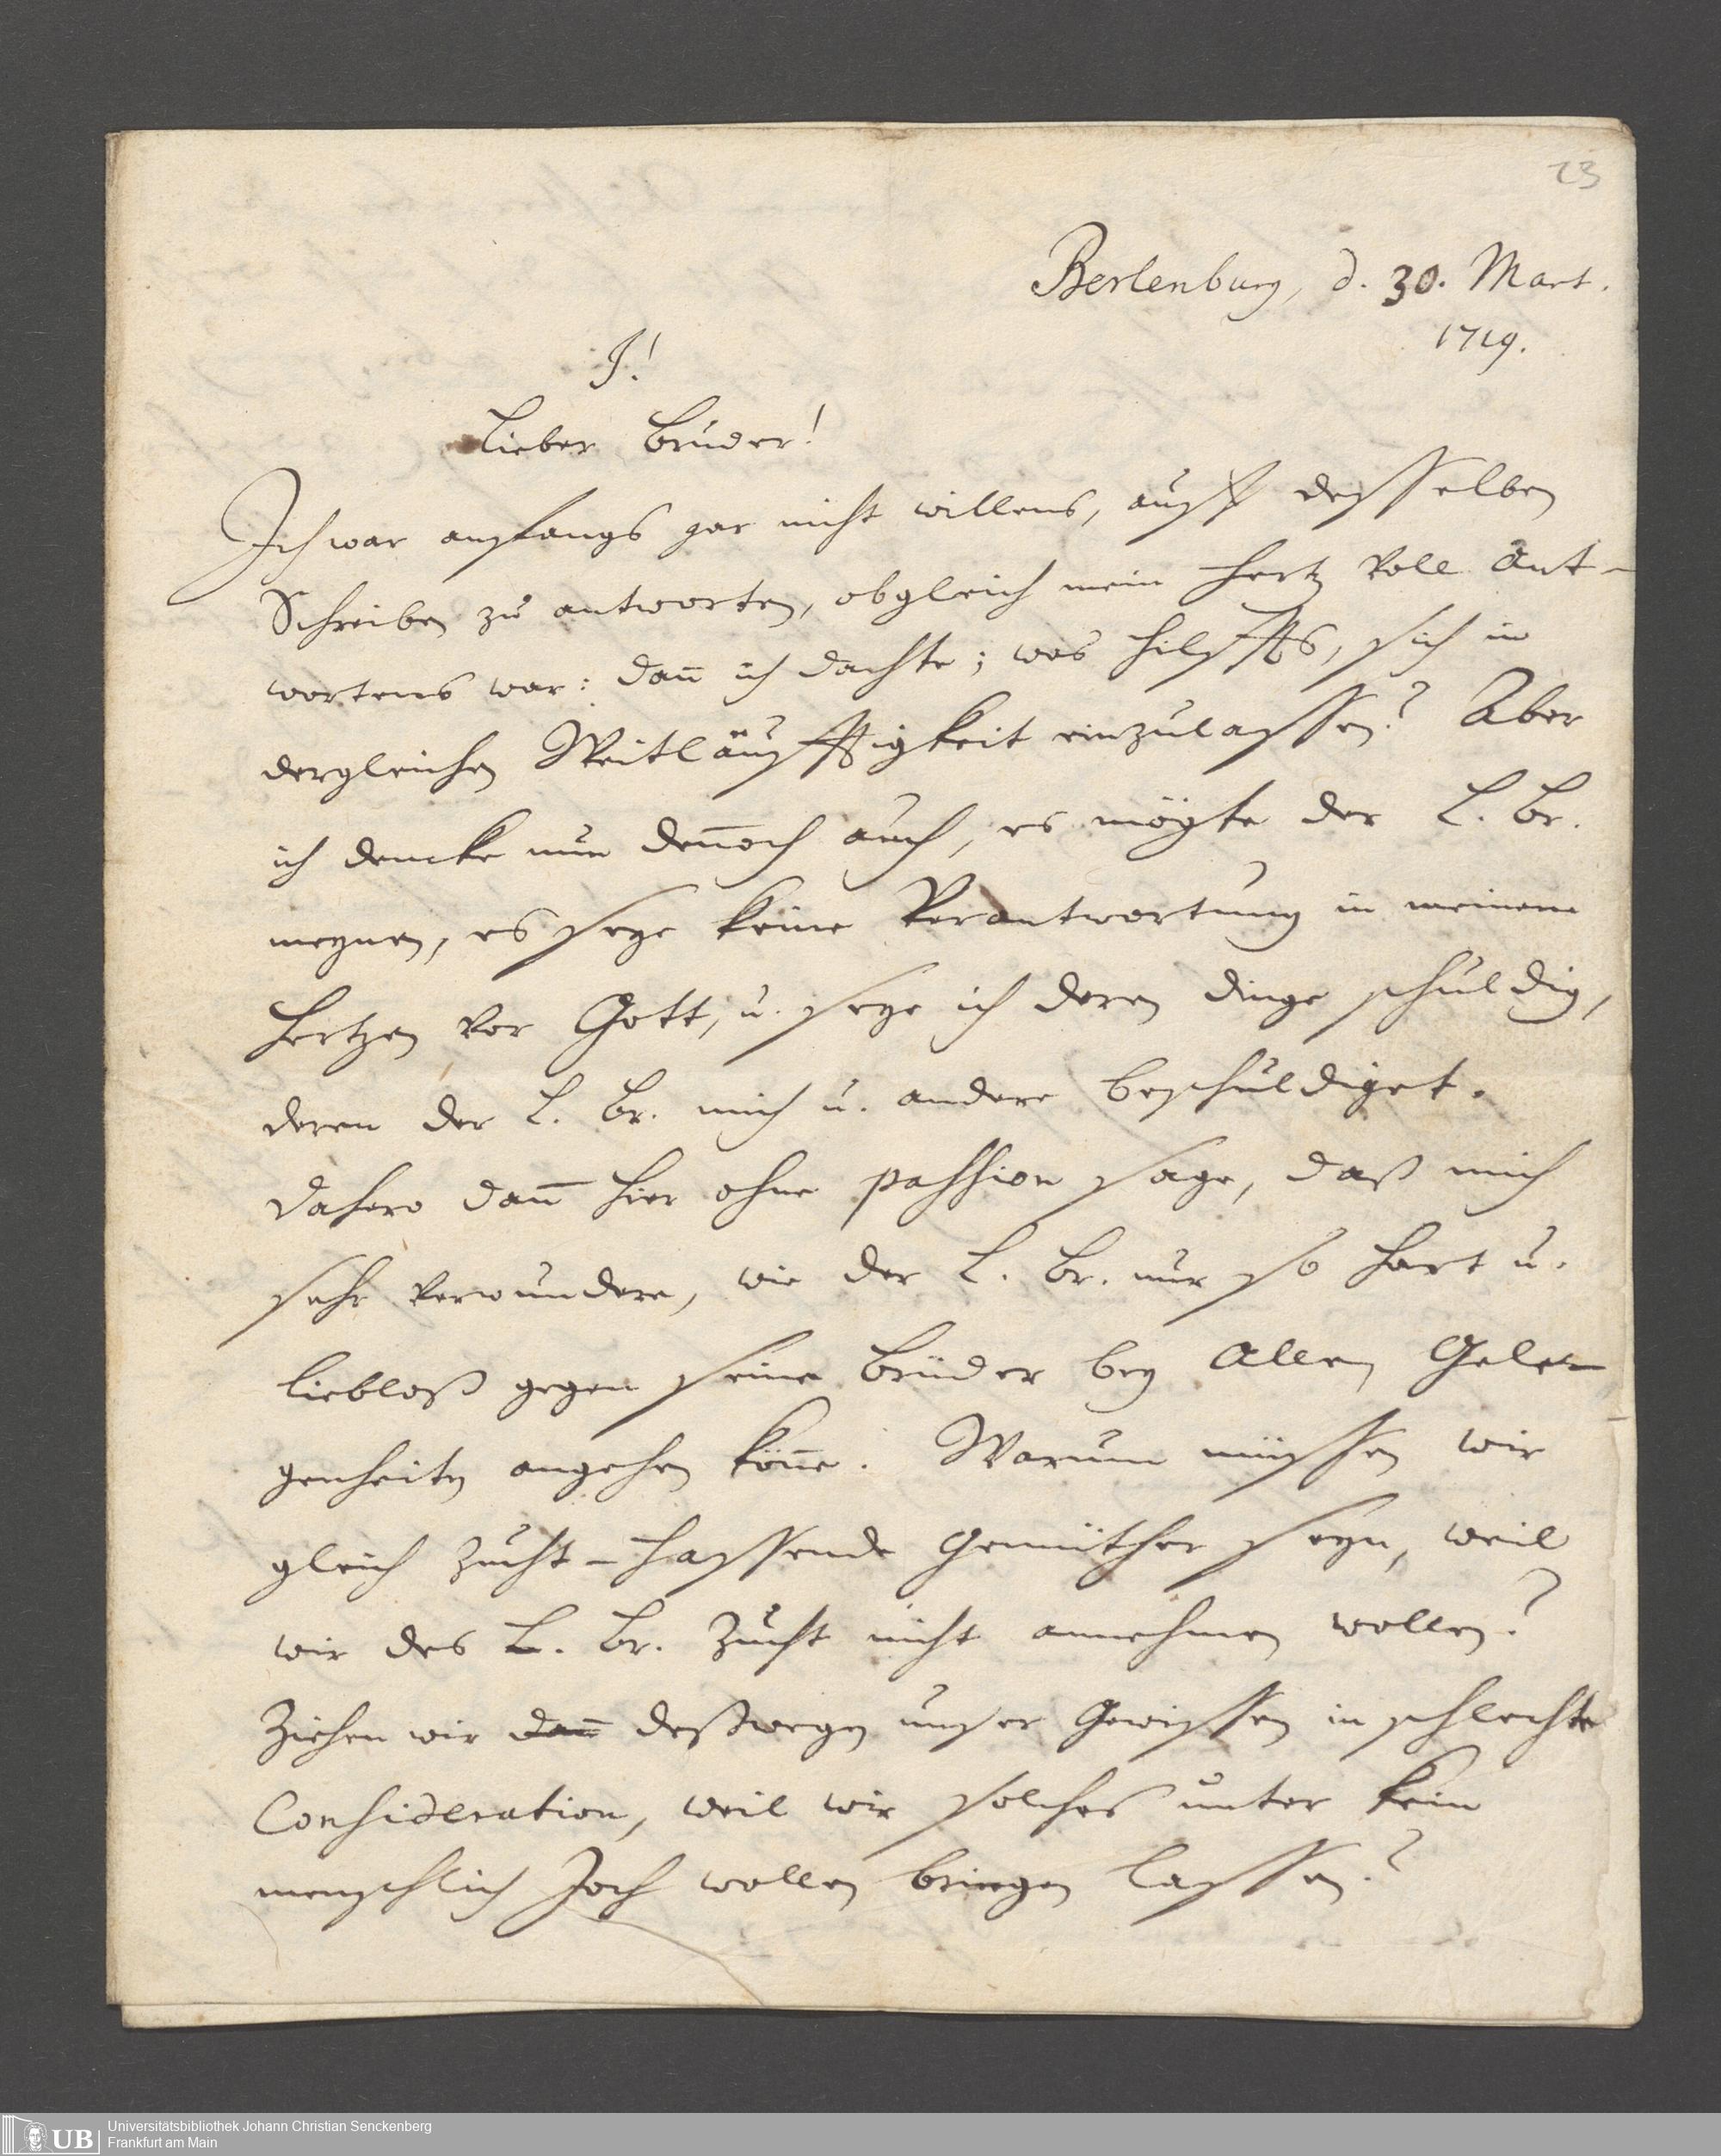 23
Berlenburg, d. 30. Mart.
1719.
J!
Lieber Bruder!
Ich war anfangs gar nicht willens, auff desselben
Schreiben zu antworten, obgleich mein Hertz voll Ant-
wortens war: dan̄ ich dachte; was hilffts, sich in
dergleichen Weitläufftigkeit einzulassen? Aber
ich dencke nun den̄och auch, es mögte der L. Br.
meynen, es seye keine Verantwortung in meinem
Hertzen vor Gott, u. seye ich deren dinge schuldig,
deren der L. Br. mich u. andere beschuldiget.
Dahero dan̄ hier ohne passion sage, daß mich
sehr verwundere, wie der L. Br. nur so hart u.
liebloß gegen seine Brüder bey allen Gele-
genheiten angehen kön̄e. Warum müssen wir
gleich Zucht-hassende Gemüther seyn, weil
wir des L. Br. Zucht nicht annehmen wollen?
Ziehen wir dan̄ deßwegen unser Gewissen in schlechte
Consideration, weil wir solches unter kein
menschlich Joch wollen bringen lassen?
UB
Universitätsbibliothek Johann Christian Senckenberg
Frankfurt am Main